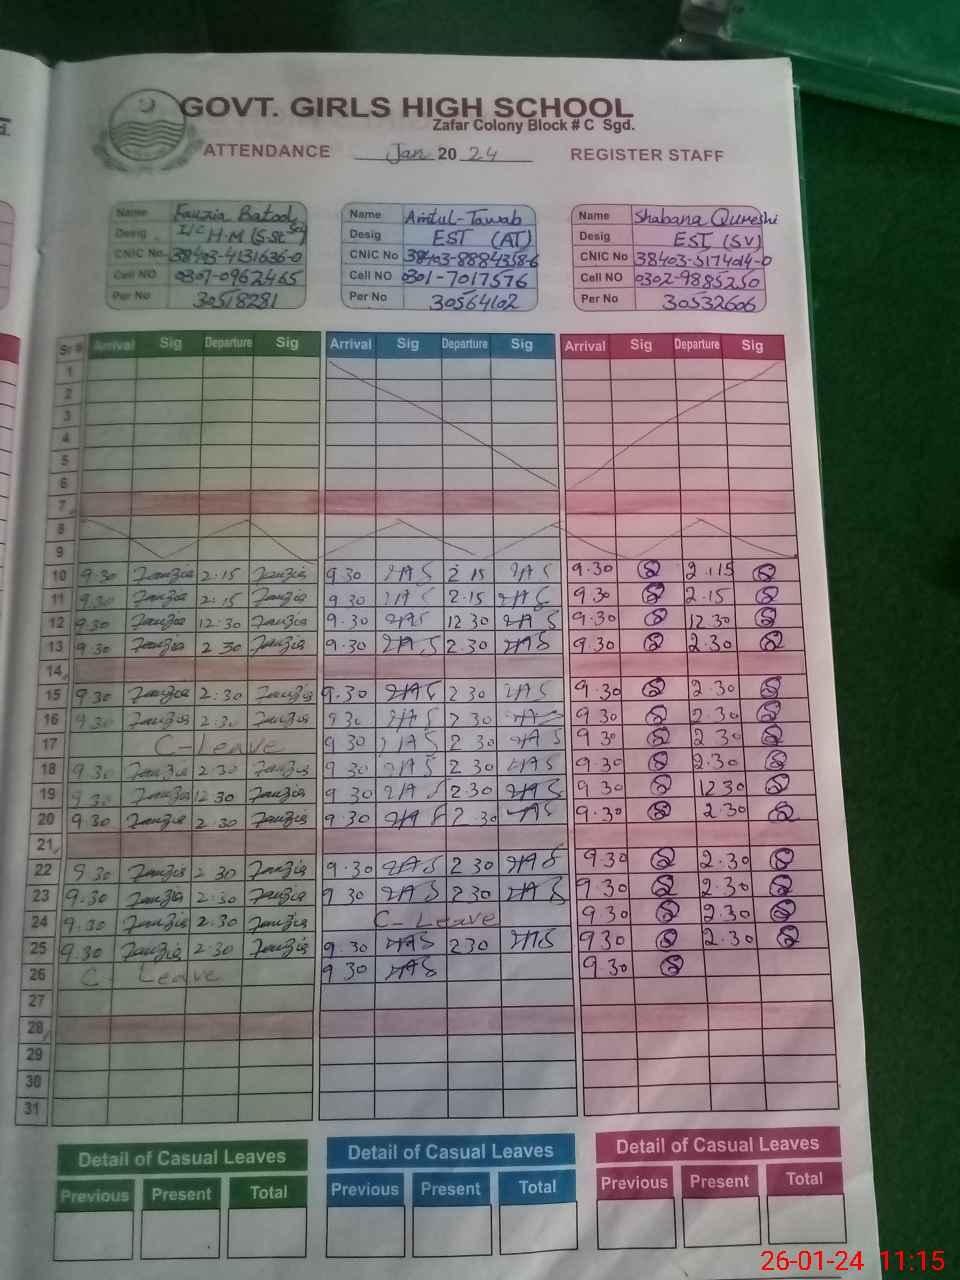 GOVT. GIRLS HIGH SCHOOL
Zafar Colony Block # C Sgd.
ATTENDANCE Jan 20 24 REGISTER STAFF
Name Fauzia Batool Name Amtul-Tawab Name Shabana Qureshi
Desig I/C H.M (S.St Sci) Desig EST (AT) Desig EST (SV)
CNIC No 38403-4131636-0 CNIC No 38403-8884358-6 CNIC No 38403-5174014-0
Cell NO 0307-0962465 Cell NO 0301-7017576 Cell NO 0302-9885250
Per No 30518281 Per No 30564102 Per No 30532606
Sr # Arrival Sig Departure Sig Arrival Sig Departure Sig Arrival Sig Departure Sig
1
2
3
4
5
6
7
8
9
10 9.30 Fauzia 2.15 Fauzia 9.30 2.15 9.30 2.15
11 9.30 Fauzia 2.15 Fauzia 9.30 2.15 9.30 2.15
12 9.30 Fauzia 12:30 Fauzia 9.30 12 30 9.30 12.30
13 9.30 Fauzia 2 30 Fauzia 9.30 2.30 9.30 2.30
14
15 9.30 Fauzia 2:30 Fauzia 9.30 2 30 9.30 2.30
16 9.30 Fauzia 2.30 Fauzia 9 30 2 30 9.30 2.30
17 C-Leave 9 30 2 30 9 30 2 30
18 9.30 Fauzia 2.30 Fauzia 9 30 2 30 9.30 2.30
19 9 30 Fauzia 12 30 Fauzia 9 30 2.30 9 30 12 30
20 9.30 Fauzia 2.30 Fauzia 9.30 2.30 9.30 2.30
21
22 9 30 Fauzia 2 30 Fauzia 9.30 2 30 9.30 2.30
23 9.30 Fauzia 2.30 Fauzia 9 30 2 30 9.30 2.30
24 9.30 Fauzia 2.30 Fauzia C-Leave 9.30 2.30
25 9.30 Fauzia 2.30 Fauzia 9.30 2 30 9 30 2.30
26 C-Leave 9 30 9.30
27
28
29
30
31
Detail of Casual Leaves Detail of Casual Leaves Detail of Casual Leaves
Previous Present Total Previous Present Total Previous Present Total
26-01-24 11:15